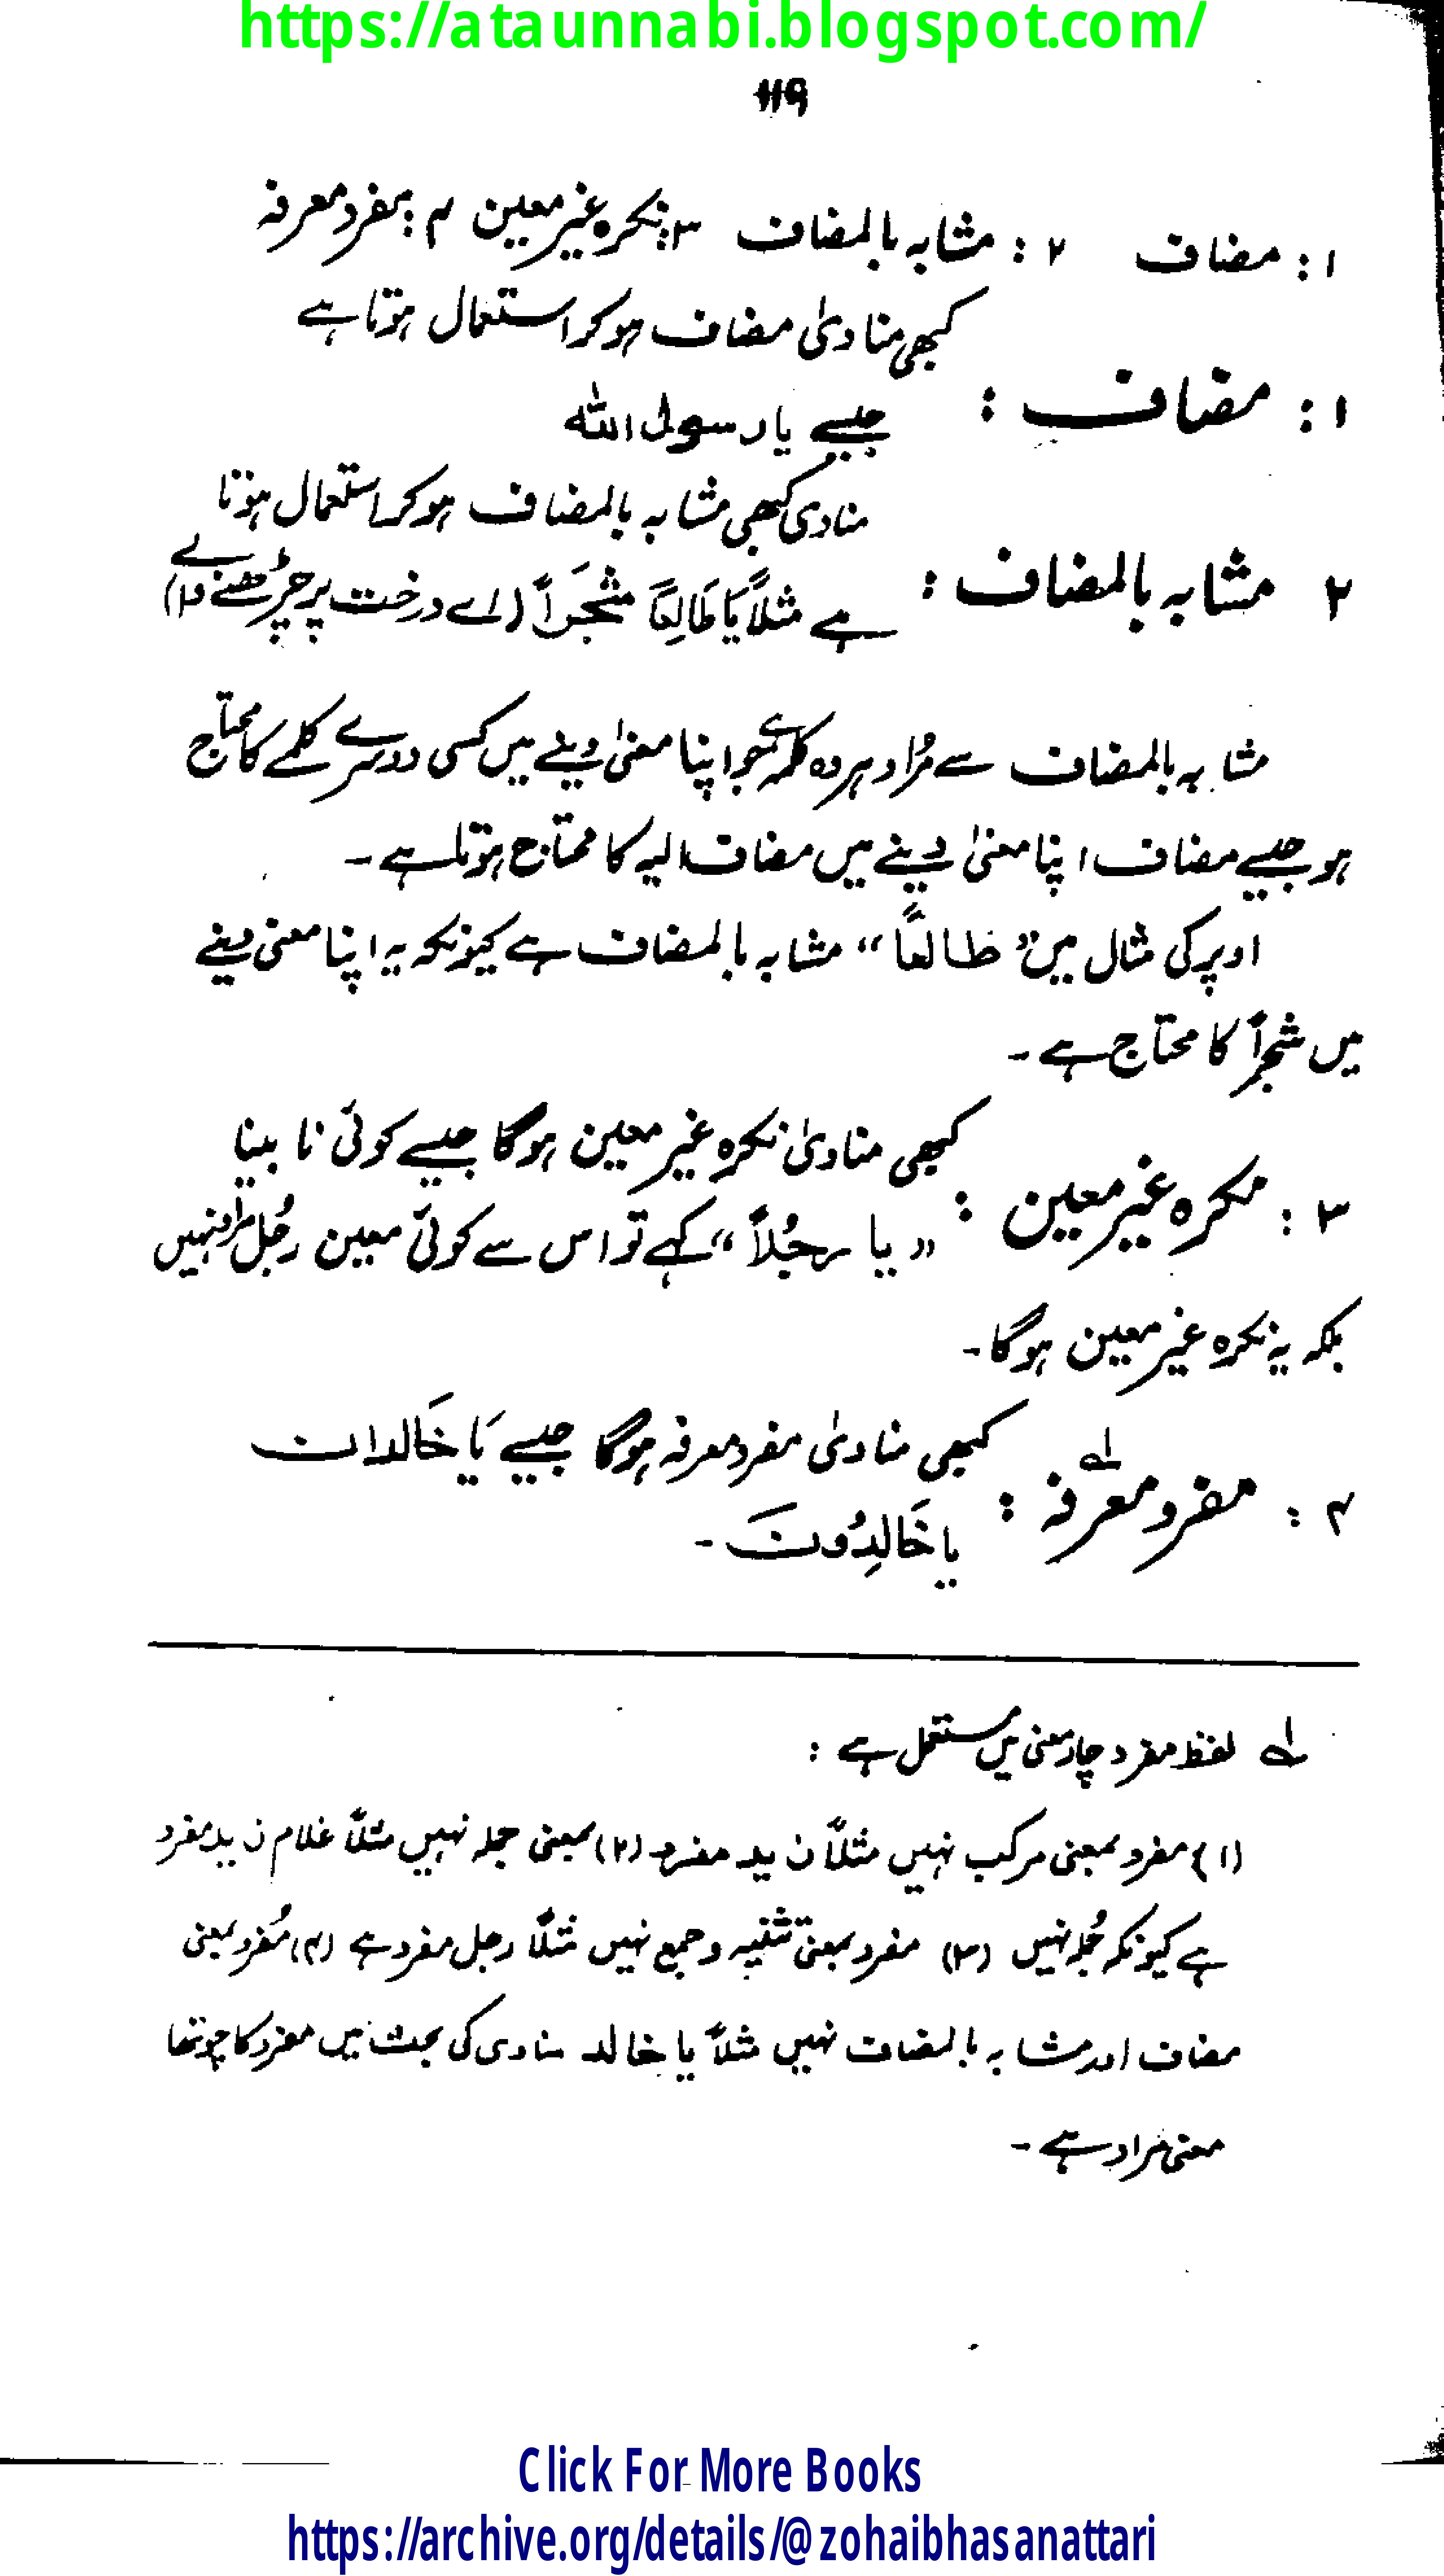 https://ataunnabi.blogspot.com/
۱۱۹
۱: مضاف ۲: مشابہ بالمضاف ۳: نکرہ غیر معین ۴: مفرد معرفہ
کبھی منادیٰ مضاف ہو کر استعمال ہوتا ہے
۱: مضاف:
جیسے یا رسول اللہ
منادی کبھی مشابہ بالمضاف ہو کر استعمال ہوتا
۲ مشابہ بالمضاف:
ہے مثلاً یَا طَالِعًا شَجَراً (اے درخت پر چڑھنے والے)
مشابہ بالمضاف سے مُراد ہر وہ کلمہ ہے جو اپنا معنیٰ دینے میں کسی دوسرے کلمے کا محتاج
ہو جیسے مضاف اپنا معنیٰ دینے میں مضاف الیہ کا محتاج ہوتا ہے۔
اوپر کی مثال میں "طالعاً" مشابہ بالمضاف ہے کیونکہ یہ اپنا معنی دینے
میں شجراً کا محتاج ہے۔
کبھی منادیٰ نکرہ غیر معین ہوگا جیسے کوئی نا بینا
۳: نکرہ غیر معین:
"یا رجُلاً" کہے تو اس سے کوئی معین رجُل مراد نہیں
بلکہ یہ نکرہ غیر معین ہوگا۔
کبھی منادیٰ مفرد معرفہ ہوگا جیسے یَا خَالدان
۴: مفرد معرفہ لے:
یا خَالِدُونَ۔
لے لفظ مفرد چار معنی میں مستعمل ہے:
(۱) مفرد بمعنی مرکب نہیں مثلاً زید مفرد (۲) بمعنی جملہ نہیں مثلاً غلام زید مفرد
ہے کیونکہ جُملہ نہیں (۳) مفرد بمعنی تثنیہ و جمع نہیں مثلاً رجل مفرد ہے (۴) مُفرد بمعنی
مضاف اور مشابہ بالمضاف نہیں مثلاً یا خالد منادی کی بحث میں مفرد کا چوتھا
معنی مراد ہے۔
Click For More Books
https://archive.org/details/@zohaibhasanattari